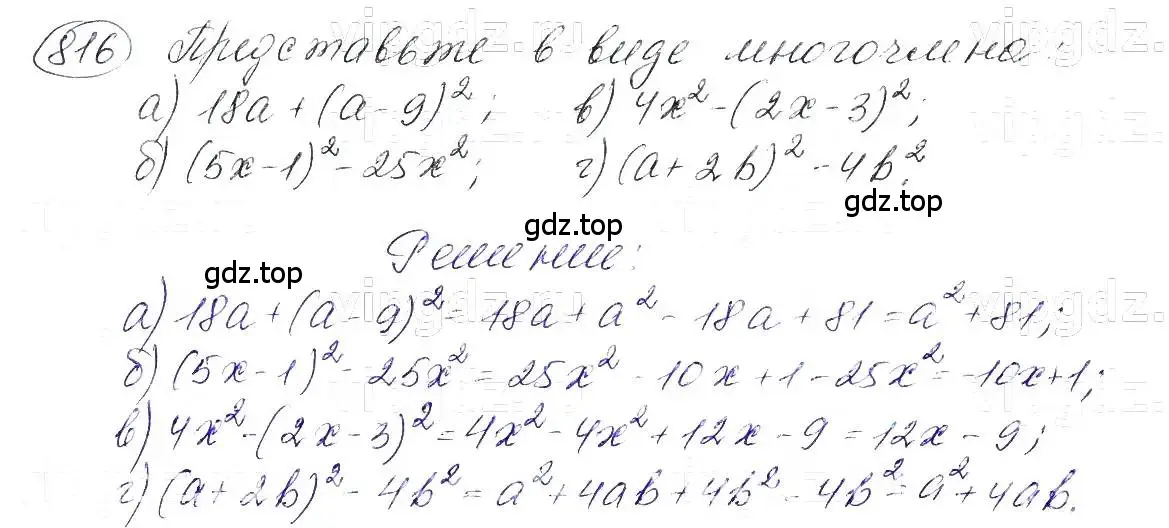 816 Представьте в виде многочлена:
а) 18a + (a - 9)²; в) 4x² - (2x - 3)²;
б) (5x - 1)² - 25x²; г) (a + 2b)² - 4b².
gdz.top gdz.top
Решение:
gdz.top
а) 18a + (a - 9)² = 18a + a² - 18a + 81 = a² + 81;
б) (5x - 1)² - 25x² = 25x² - 10x + 1 - 25x² = -10x + 1;
в) 4x² - (2x - 3)² = 4x² - 4x² + 12x - 9 = 12x - 9;
г) (a + 2b)² - 4b² = a² + 4ab + 4b² - 4b² = a² + 4ab.